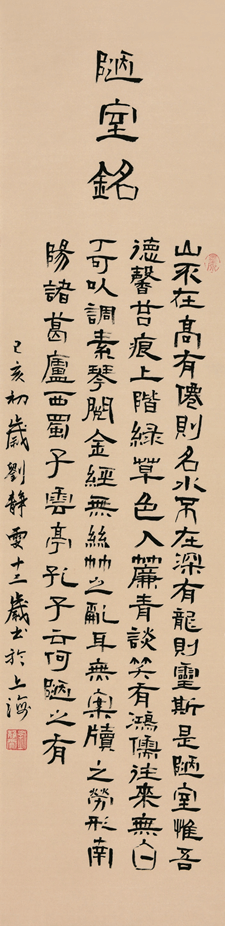 陋室銘
山不在高有僊則名水不在深有龍則靈斯是陋室惟吾
德馨苔痕上階綠草色入簾青談笑有鴻儒往來無白
丁可以調素琴閱金經無絲竹之亂耳無案牘之勞形南
陽諸葛廬西蜀子雲亭孔子云何陋之有
己亥初歲劉靜雯十二歲書於上海